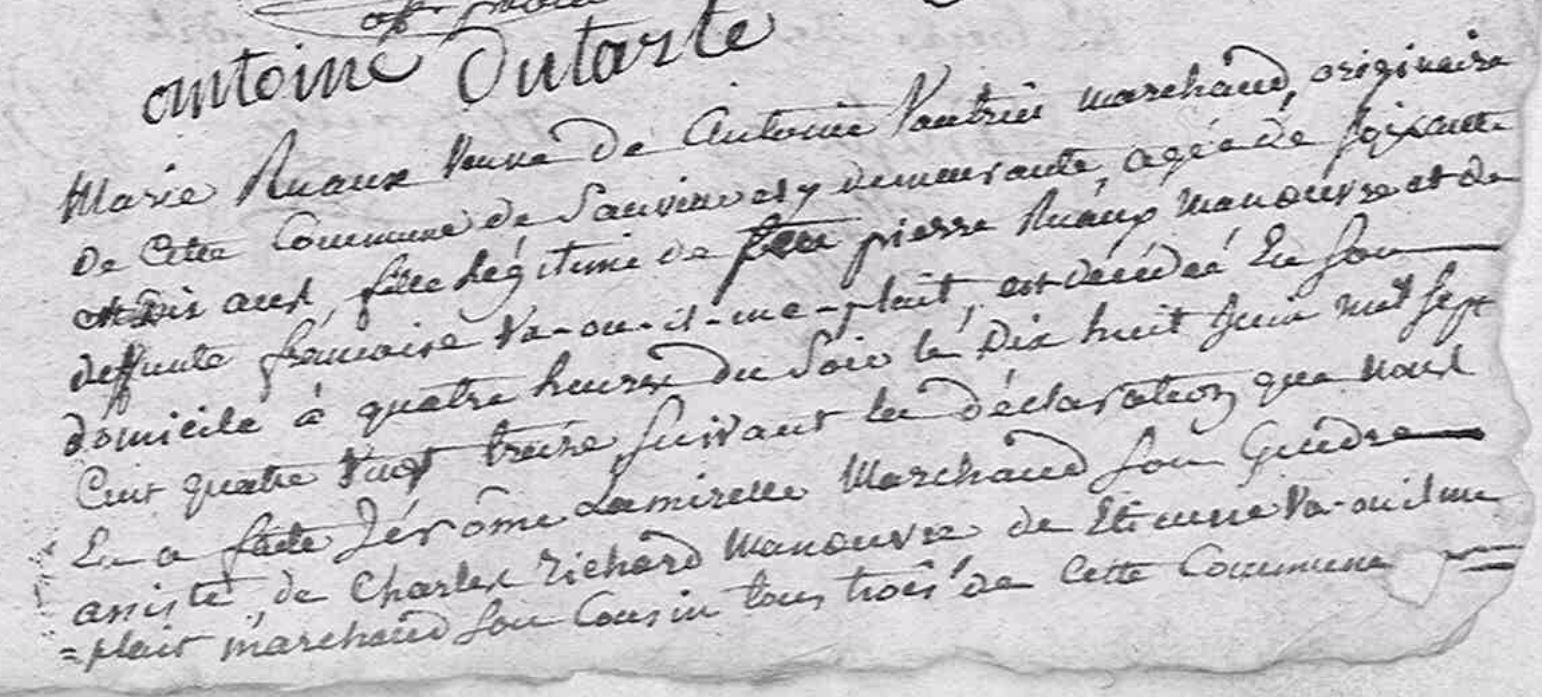 antoine Dutarte
Marie Ruaux veuve de Antoine Vautrin marchand, originaire
de Cette Commune de Sauvine et y demeurante, agée de soixante
et dix ans, fille légitime de feu pierre Ruaux manouvre et de
deffunte françoise Va-ou-il-me-plait, est décédeé En son
domicile à quatre heures du soir le Dix huit Juin mil sept
Cent quatre vingt treize suivant la déclaration que nous
En a faite Jérôme Lamirelle Marchand son Gendre
assisté, de Charles richard Manouvre de Etienne Va-ou il me
=plait marchand son Cousin tous trois de Cette Commune =